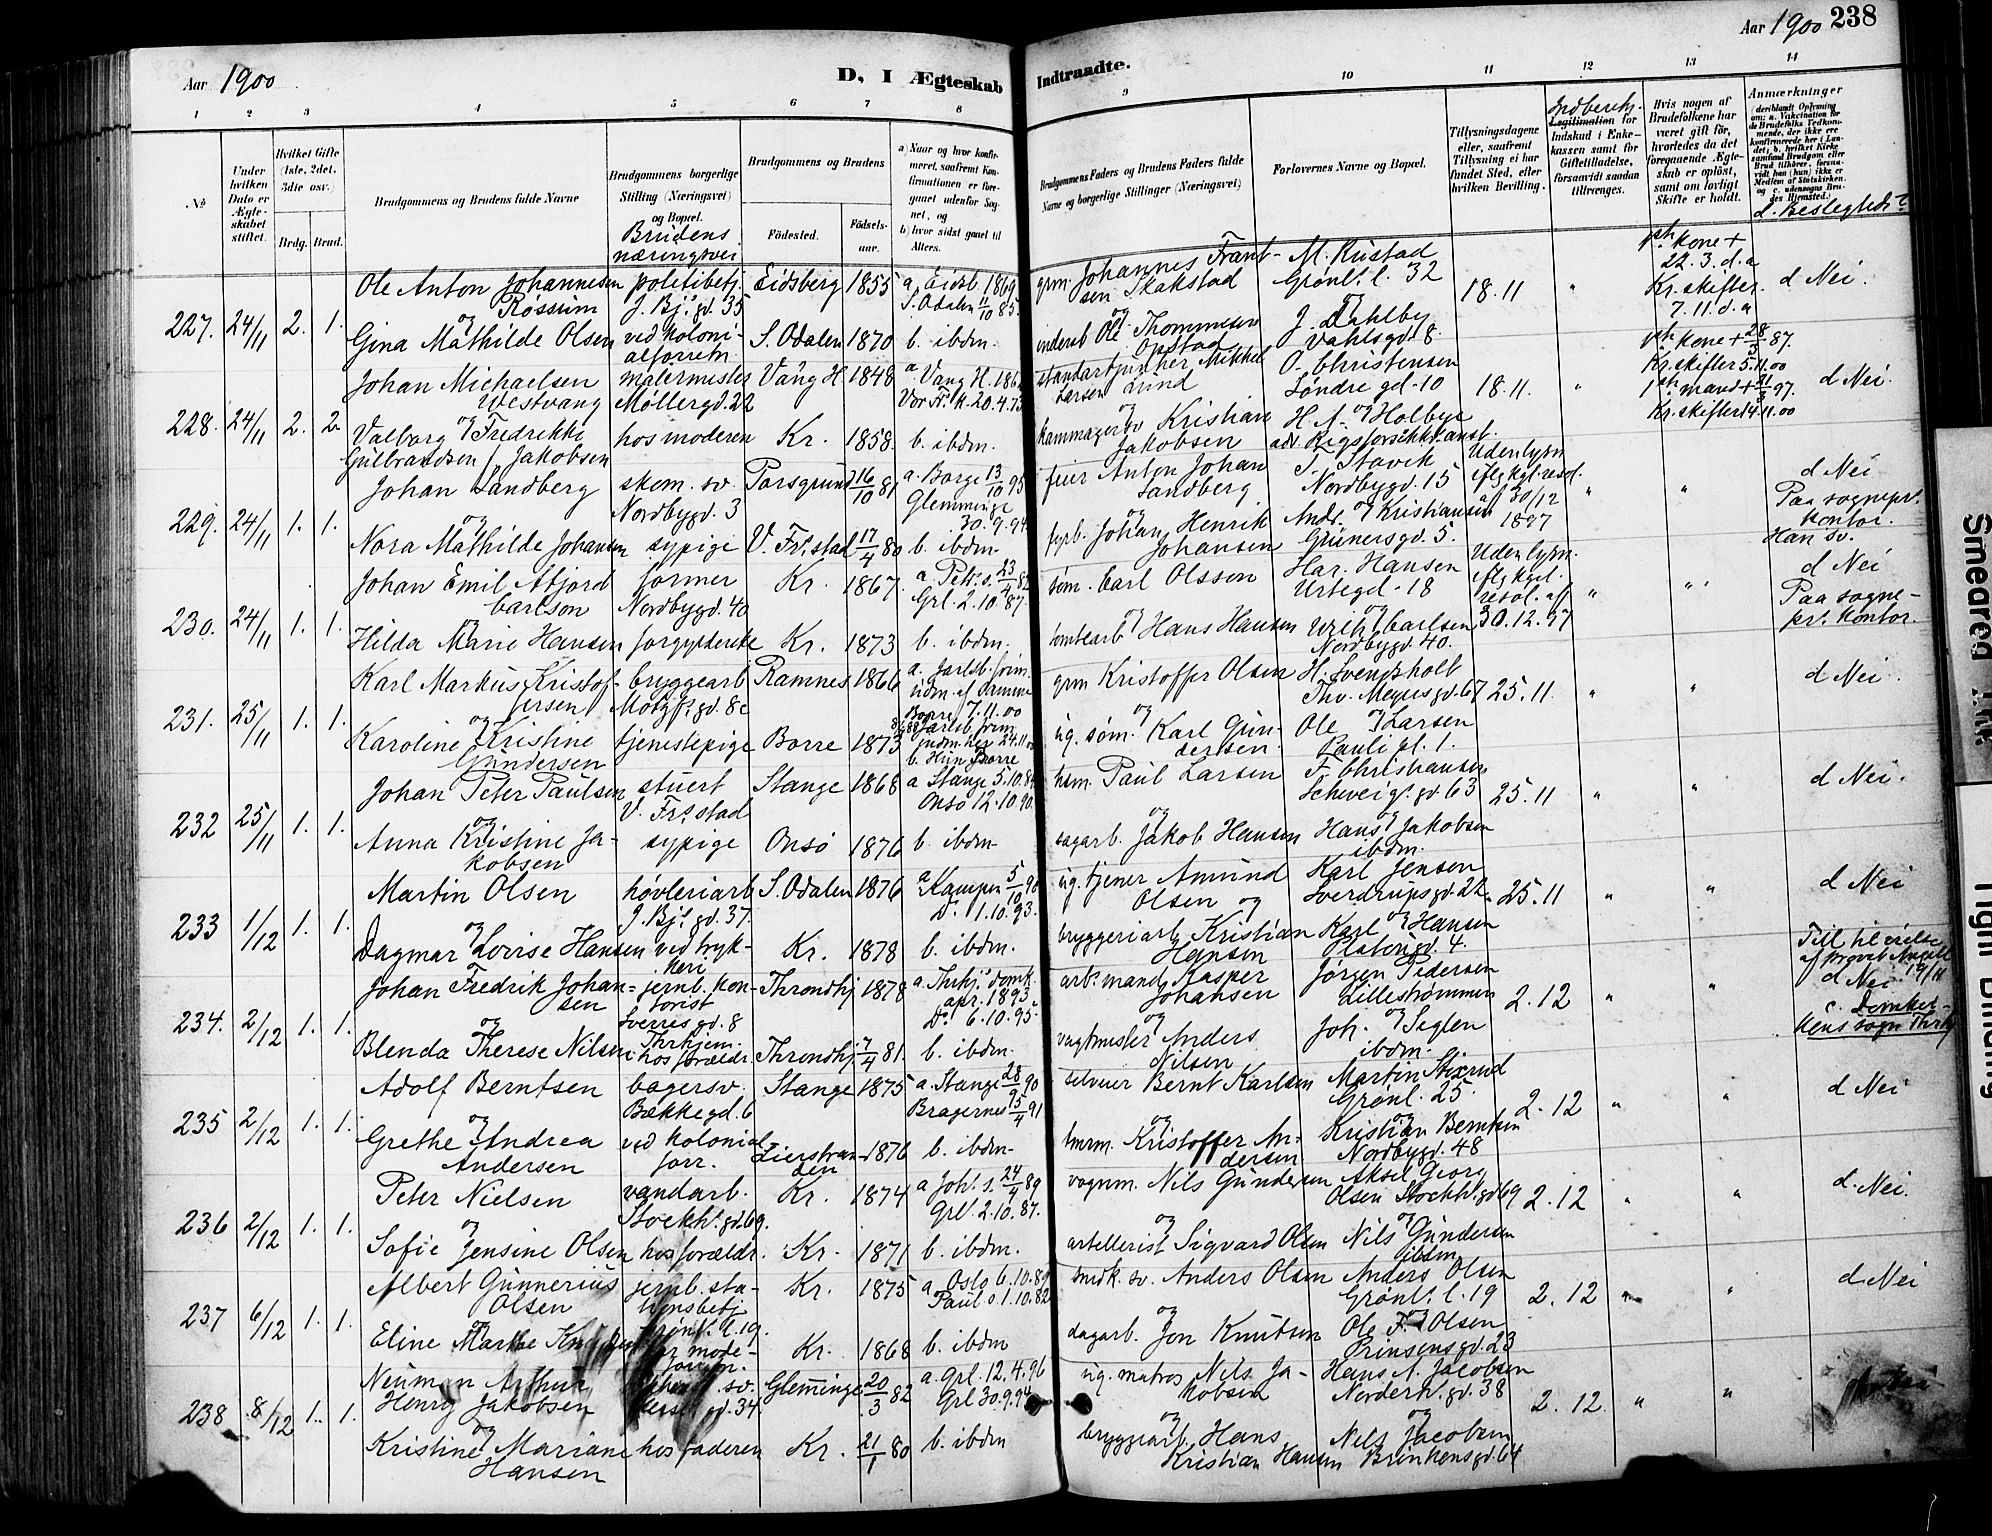 Aar 1900
D, I Ægteskab
1 2 3 4 5 6 7 8
№
Under hvilken Dato er Ægteskabet stiftet.
Hvilket Gifte (1ste, 2det, 3die osv.)
Brdg. Brud.
Brudgommens og Brudens fulde Navne
Brudgommens borgerlige Stilling (Næringsvei) og Bopæl.
Brudens næringsvei
Brudgommens og Brudens
Fødested.
Fødselsaar.
a) Naar og hvor konfirmeret, saafremt Konfirmationen er foregaaet udenfor Sognet, og
b) hvor sidst gaaet til Alters.
227. 24/11 2. 1.
Ole Anton Johannesen Røssum politibetj. J. Bj.s gd. 35 Eidsberg 1855 a. Eidsb. 1869 S. Odalen 11/10 85.
og
Gina Mathilde Olsen ved kolonialforretn. S. Odalen 1870 b. ibdm.
228. 24/11 2. 2.
Johan Michaelsen Westvang malermester Møllergd. 22 Vang H. 1848
og
Valborg Fredrikke Gulbrandsen f. Jakobsen hos moderen Kr. 1858. b. ibdm.
229. 24/11 1. 1.
Johan Sandberg skom. sv. Nordbygd. 3 Porsgrund 16/10 81 a. Borge 13/10 95 Glemminge 30.9.94
og
Nora Mathilde Johansen sypige V. Fr.stad 17/4 80 b. ibdm.
230. 24/11 1. 1.
Johan Emil Afjord Carlson former Nordbygd. 40 Kr. 1867. Grl. 2.10.87.
og
Hilda Marie Hansen forgylderske Kr. 1873 b. ibdm.
231. 25/11 1. 1.
Karl Markus Kristoffersen bryggearb. Motzf. gd. 8c Ramnes 1866
og
Karoline Kristine Gundersen tjenestepige Borre 1873
232 25/11 1. 1.
Johan Peter Paulsen stuert V. Fr.stad Stange 1868 a Stange 5.10.84 Onsø 12.10.90.
og
Anna Kristine Jakobsen sypige Onsø 1876 b. ibdm
233 1/12 1. 1.
Martin Olsen høvleriarb J. Bj.s gd. 37. S. Odalen 1876 a. Kampen 5/10 90 Do. 1.10.93.
og
Dagmar Lovise Hansen ved trykkeri Kr. 1878 b. ibdm.
234. 2/12 1. 1.
Johan Fredrik Johansen jernb. kontorist Sverres gd. 8 Throndhj 1878 a. Thrhj. domk. apr. 1893 Do. 6.10.95
og
Blenda Therese Nilsen Thrhjem. hos forældr. Throndhj 7/4 81. b. ibdm.
235 2/12 1. 1.
Adolf Berntsen bagersv. Bækkegd. 6 Stange 1875 a. Stange 28/9 90 Bragernes 15/4 91
og
Grethe Andrea Andersen ved kolonialforr. Lierstranden 1876 b. ibdm.
236 2/12 1. 1.
Peter Nielsen vandarb. Stockh. gd. 69. Kr. 1874 a Joh. s. 24/4 89 Grl. 2.10.87.
og
Sofie Jensine Olsen hos forældr. Kr. 1871 b. ibdm.
237 6/12 1. 1.
Albert Gunnerius Olsen jernb. stationsbetj Grønl. l. 19. Kr. 1875 a. Oslo 6.10.89 Paul. s. 1.10.82
og
Eline Marthe Kr. 1868 b. ibdm
238 8/12 1. 1.
Neuman Arthur Henry Jakobsen Gleminge 20/3 82 a. Grl. 12.4.96 Grl 30.9.94
og
Kristine Mariane Hansen hos faderen Kr. 21/1 80 b. ibdm
Indtraadte.
Aar 1900 238
9 10 11 12 13 14
Brudgommens Faders og Brudens Faders fulde Navne og borgerlige Stillinger (Næringsvei)
Forlovernes Navne og Bopæl.
Tillysningsdagene eller, saafremt Tillysning ei har fundet Sted, efter hvilken Bevilling.
Indberetn.
Legitimation for Indskud i Enkekassen samt for Giftetilladelse, forsaavidt saadan tiltrænges.
Hvis nogen af Brudefolkene har været gift før, hvorledes da det foregaaende Ægteskab er opløst, samt om lovligt Skifte er holdt.
Anmærkninger
(deriblandt Oplysning om: a. Vakcination for de Brudefolks Vedkommende, der ikke ere konfirmerede her i Landet; b. hvilket Kirkesamfund Brudgom eller Brud tilhører, forsaavidt han (hun) ikke er Medlem af Statskirken, og c. udensogns Brudes Hjemsted.)
d. Beslegtede?
grm. Johannes Frantsen Skakstad M. Rustad Grønl. l. 32 18.11 " 1st kone + 22.3. d.a Kr. skifter. 7.11. d.a d Nei.
og
inderst Ole Thommesen Opstad J. Dahlby Vahlsgd. 8.
standartjunker Mikkel Larsen Lund O. Christensen Søndre gd. 10 18.11. " 1st kone + 28/3 87. Kr. skifter 5.11.00 1st mand + 21/3 97. Kr. skifter 14.11.00 d Nei.
og
kammagersv Kristian Jakobsen H. A. Holbye
feier Anton Johan Sandberg T. Stavik Nordbygd. 15 Uden lysn iflg kgl. resol. af 30/12 1897 " " d Nei Paa sognepr. kontor.
og
fyrb. Johan Henrik Johansen Andr. Kristiansen Grüners gd. 5.
søm. Carl Olsson Har. Hansen Urtegd. 18 Uden lysn. iflg kgl. resol. af 30.12.97 " " d Nei Paa sognepr. kontor.
og
tomtearb Hans Hansen Wilh. Carlsen Nordbygd. 40.
grm Kristoffer Olsen H. Svendsholt Thv. Meyers gd. 67 25.11. " " d Nei.
og
ug. søm. Karl Gundersen. Ole Larsen Pauli pl. 1.
hsm. Paul Larsen F. Christiansen Schweig. gd. 63 25.11 " " d Nei.
og
sagarb. Jakob Hansen Hans Jakobsen ibdm.
ug. tjener Amund Olsen og Karl Jensen Sverdrups gd. 22. 25.11 " " d Nei
bryggeriarb Kristian Hansen Karl Hansen Platous gd. 4.
arb. mand Kasper Johansen Jørgen Pedersen Lillestrømmen 2.12 " " d Nei c. Domkirkens sogn Thrhj
og
vagtmester Anders Nilsen Joh. Seglen ibdm.
selveier Bernt Karlsen Martin Stixrud Grønl. 25. 2.12 " " d Nei
og
tmrm. Kristoffer Andersen Kristian Berntsen Nordbygd. 48
vognm. Nils Gundersen Aksel Georg Olsen Stockh. gd 69 2.12 " " d. Nei.
og
artellerist Sigvard Olsen Nils Gundersen ibdm
smdk. sv. Anders Olsen Anders Olsen Grønl. l. 19 2.12 " " d. Nei
og
dagarb. Jon Knutsen Ole F. Olsen Prinsens gd. 23
ug. matros Nils Jakobsen Hans A. Jacobsen Norderh. gd. 38 2.12. " "
og
bryggearb. Hans Kristian Hansen Nils Jacobsen Brinkens gd. 64
Smeared Ink
Tight Binding